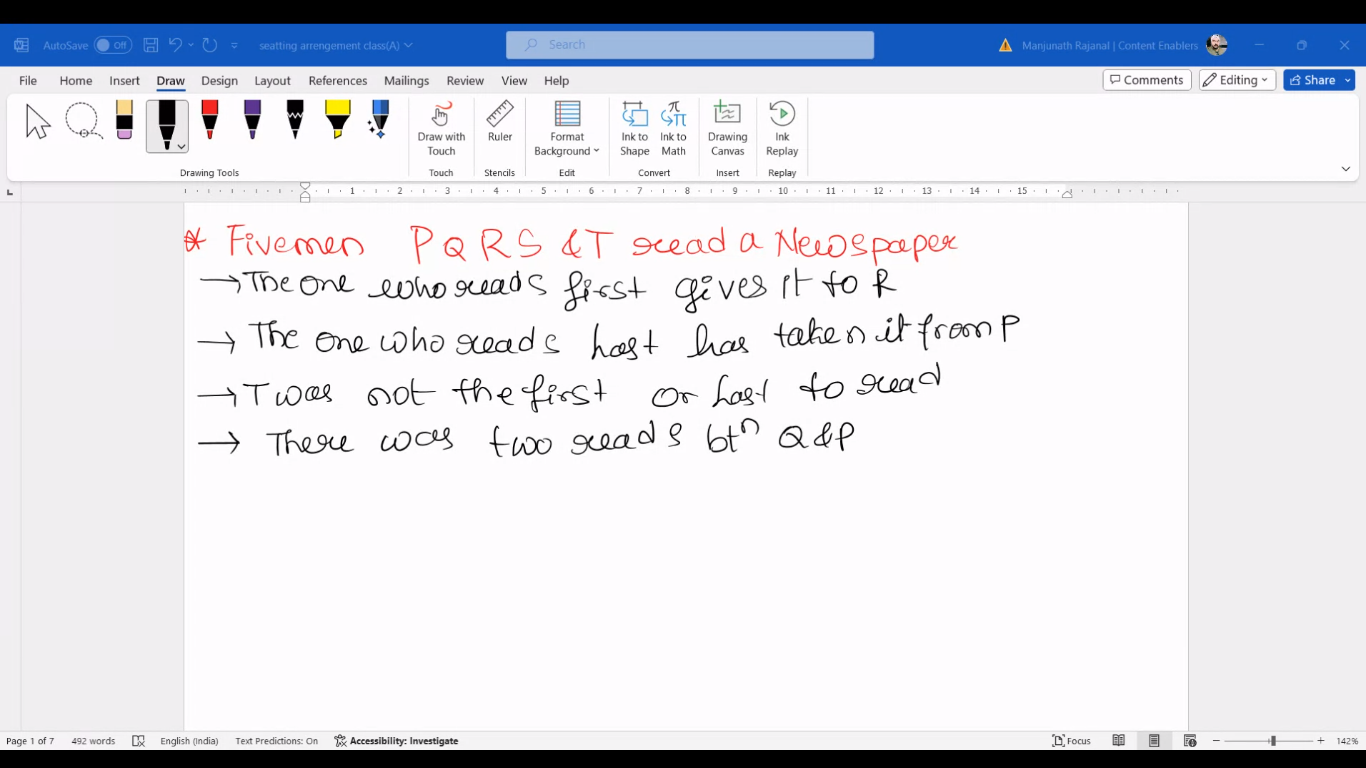 AutoSave Off seatting arrengement class(A) Search Manjunath Rajanal | Content Enablers
File Home Insert Draw Design Layout References Mailings Review View Help Comments Editing Share
Draw with Touch Ruler Format Background Ink to Shape Ink to Math Drawing Canvas Ink Replay
Drawing Tools Touch Stencils Edit Convert Insert Replay
1 2 3 4 5 6 7 8 9 10 11 12 13 14 15
* Fivemen P Q R S & T read a Newspaper
→ The one who reads first gives it to R
→ The one who reads last has taken it from P
→ T was not the first or Last to read
→ There was two reads btn Q & P
Page 1 of 7 492 words English (India) Text Predictions: On Accessibility: Investigate Focus 142%